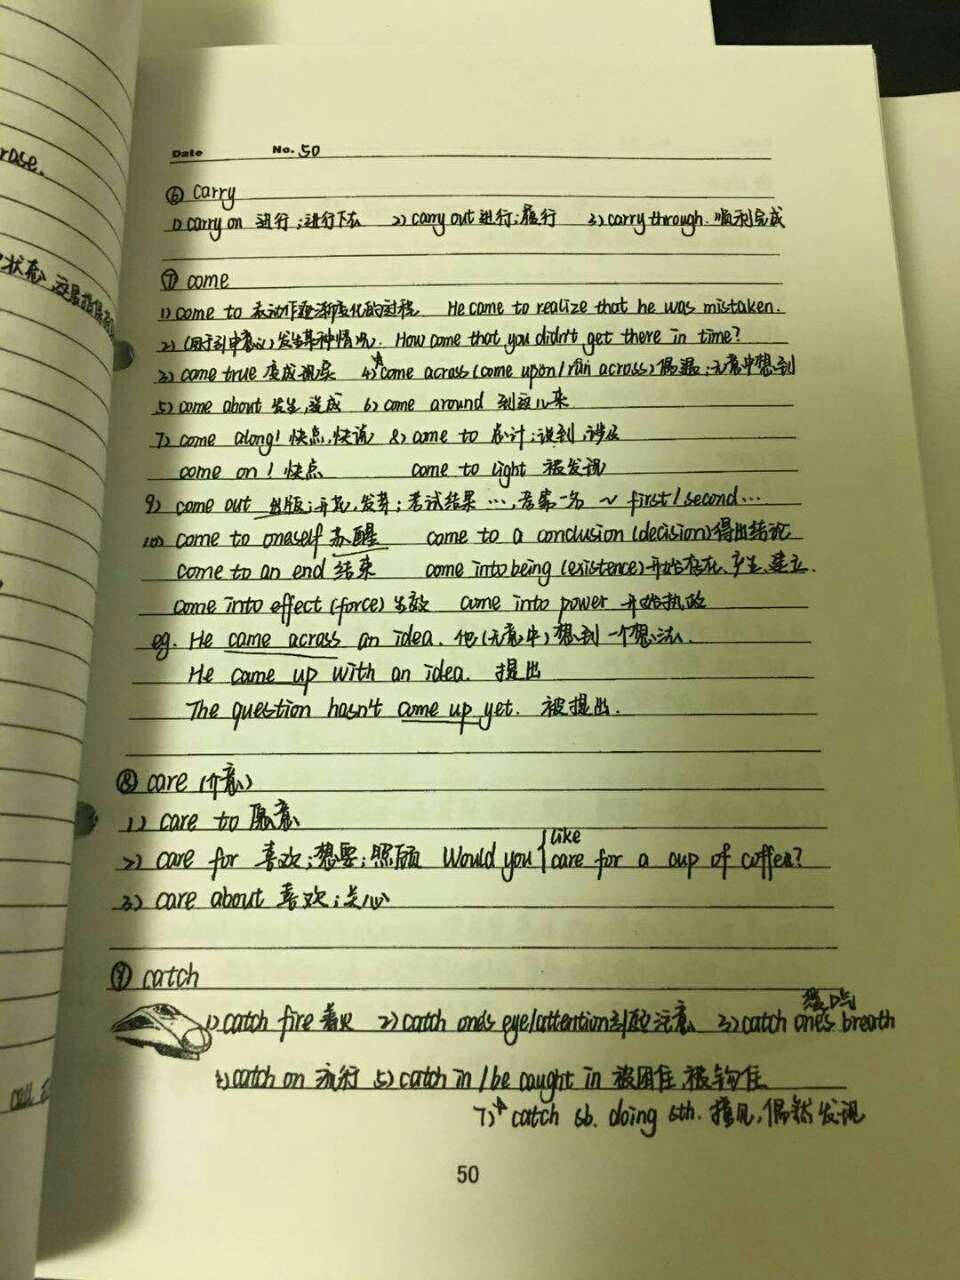 rase.
Date No. 50
⑥ carry
1) carry on 进行;进行下去 2) carry out 进行;履行 3) carry through. 顺利完成
状态
⑦ come
1) come to 表动作逐渐变化的过程 He came to realize that he was mistaken.
2) (用于引申意义)发生某种情况. How come that you didn't get there in time?
3) come true 变成现实 4)* come across (come upon/run across) 偶遇;无意中想到
5) come about 发生,造成 6) come around 到这儿来
7) come along! 快点,快请 8) come to 总计;谈到,涉及
come on! 快点 come to light 被发现
9) come out 出版;开花,发芽;考试结果…,考第一名 ~ first/second…
10) come to oneself 苏醒 come to a conclusion (decision)得出结论
come to an end 结束 come into being (existence)开始存在、产生、建立.
come into effect (force) 生效 come into power 开始执政
eg. He came across an idea. 他(无意中)想到一个想法.
He came up with an idea. 提出
The question hasn't come up yet. 被提出.
⑧ care (介意)
1) care to 愿意
2) care for 喜欢;想要;照顾 Would you { like
care for a cup of coffee?
3) care about 喜欢;关心
⑨ catch
缓口气
1) catch fire 着火 2) catch one's eye/attention 引起注意 3) catch one's breath
4) catch on 流行 5) catch in / be caught in 被困住,被钩住
7)* catch sb. doing sth. 撞见,偶然发现
call
50